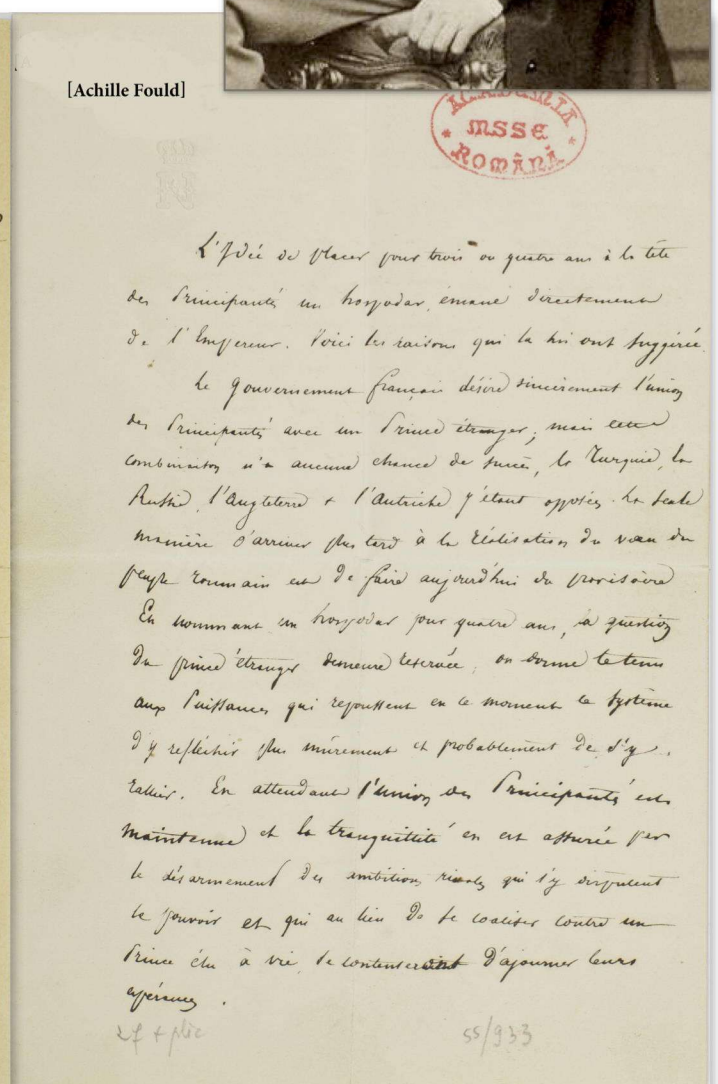 [Achille Fould]
ACADEMIA
MSSE
ROMÂNĂ
L'Idée de placer pour trois ou quatre ans à la tête
des Principautés un hospodar, émané directement
de l'Empereur. Voici les raisons qui la lui ont suggérée.
Le gouvernement français désire sincèrement l'union
des Principautés avec un Prince étranger; mais cette
combinaison n'a aucune chance de succès, la Turquie, la
Russie, l'Angleterre & l'Autriche y étant opposées. La seule
manière d'arriver plus tard à la réalisation du vœu du
peuple roumain est de faire aujourd'hui du provisoire
En nommant un hospodar pour quatre ans, la question
du prince étranger demeure réservée, on donne le tems
aux Puissances qui repoussent en ce moment ce système
d'y refléchir plus mûrement et probablement de s'y
rallier. En attendant l'union des Principautés est
maintenue et la tranquillité en est assurée par
le désarmement des ambitions rivales qui s'y disputent
le pouvoir et qui au lieu de se coaliser contre un
Prince élu à vie, se contenteraient d'ajourner leurs
espérances.
27 + plic
55/933